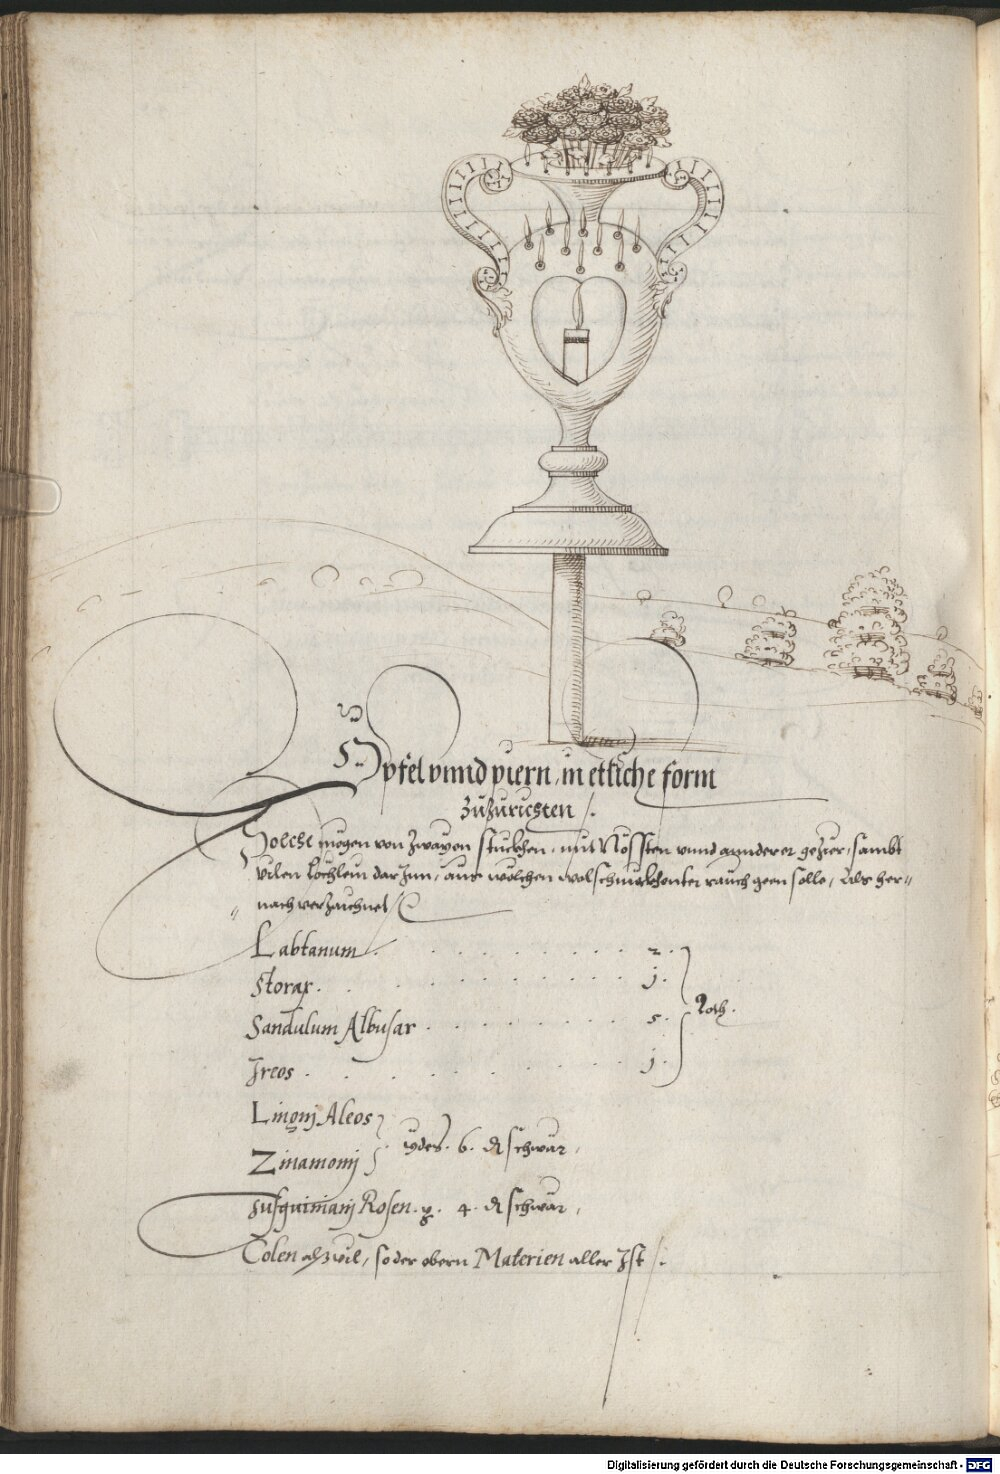 Öpfel vnnd piern, in etliche form
Zuzurichten /.
Solche mögen von zwayen stuckhen, mit Rössten vnnd annderer gezier, sambt
vilen löchlein darzun, aus wölchen wolschmekhenter rauch geen solle, als her-
nach verzaichnet /
Labtanum . . . . . . . . 2.
Storax . . . . . . . . j.
Sandulum Albusar . . . . . . 5. Loth.
Jreos . . . . . . . . j.
Ligni Aleos
Zinamomj ydes. 6. d schwär,
Rosen. 4. d schwär,
Colen alzvil, so der obern Materien aller Jst /.
Digitalisierung gefördert durch die Deutsche Forschungsgemeinschaft - DFG